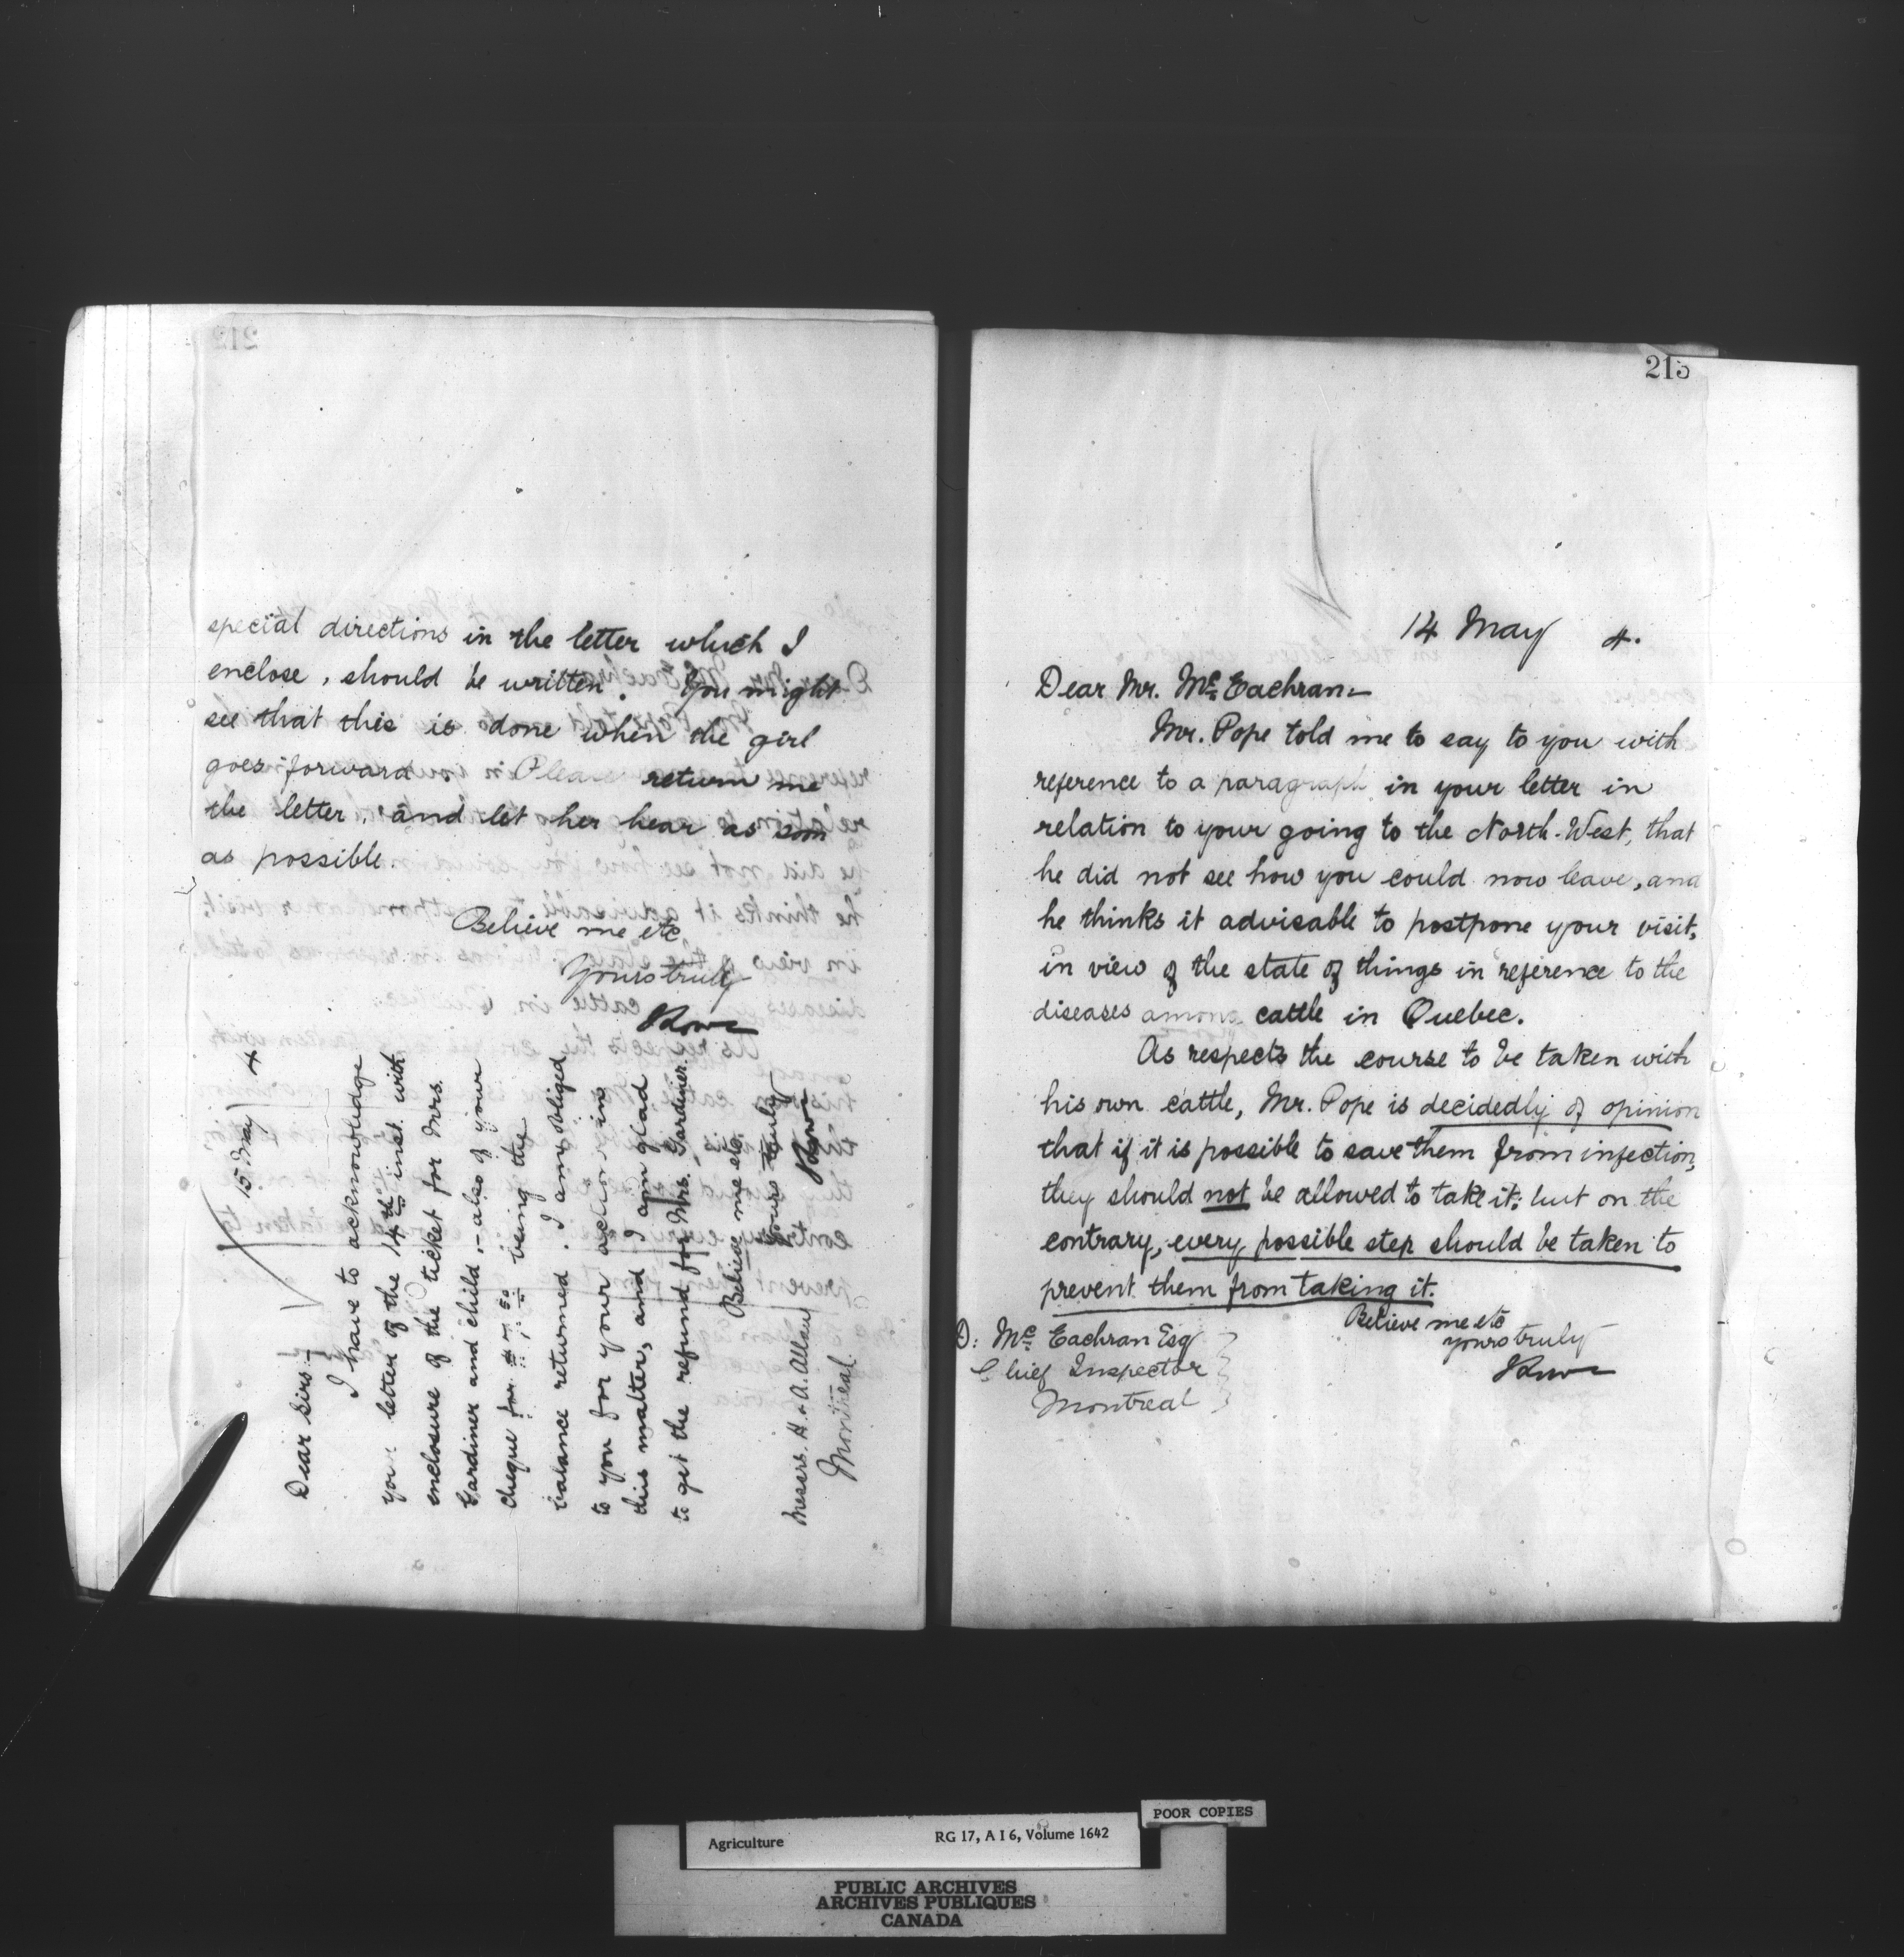 212
special directions in the letter which I
enclose, should be written. You might
see that this is done when the girl
goes forward. Please return me
the letter, and let her hear as soon
as possible.
Believe me etc
Yours truly
15 May 4
Dear Sirs—
I have to acknowledge
your letter of the 14th inst. with
enclosure of the ticket for Mrs.
Gardiner and child - also of your
cheque for being the
balance returned. I am obliged
to you for your action in
this matter, and I am glad
to get the refund for Mrs. Gardiner.
Believe me etc.
Yours truly
Messrs. H. & A. Allan
Montreal.
213
14 May 4.
Dear Mr. McEachran—
Mr. Pope told me to say to you with
reference to a paragraph in your letter in
relation to your going to the North-West, that
he did not see how you could now leave, and
he thinks it advisable to postpone your visit,
in view of the state of things in reference to the
diseases among cattle in Quebec.
As respects the course to be taken with
his own cattle, Mr. Pope is decidedly of opinion
that if it is possible to save them from infection,
they should not be allowed to take it: but on the
contrary, every possible step should be taken to
prevent them from taking it.
Believe me etc
yours truly
D: McEachran Esq
Chief Inspector
Montreal
POOR COPIES
Agriculture RG 17, A I 6, Volume 1642
PUBLIC ARCHIVES
ARCHIVES PUBLIQUES
CANADA